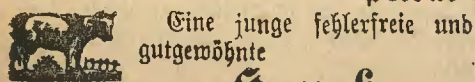 Eine junge fehlerfreie und
gutgewöhnte